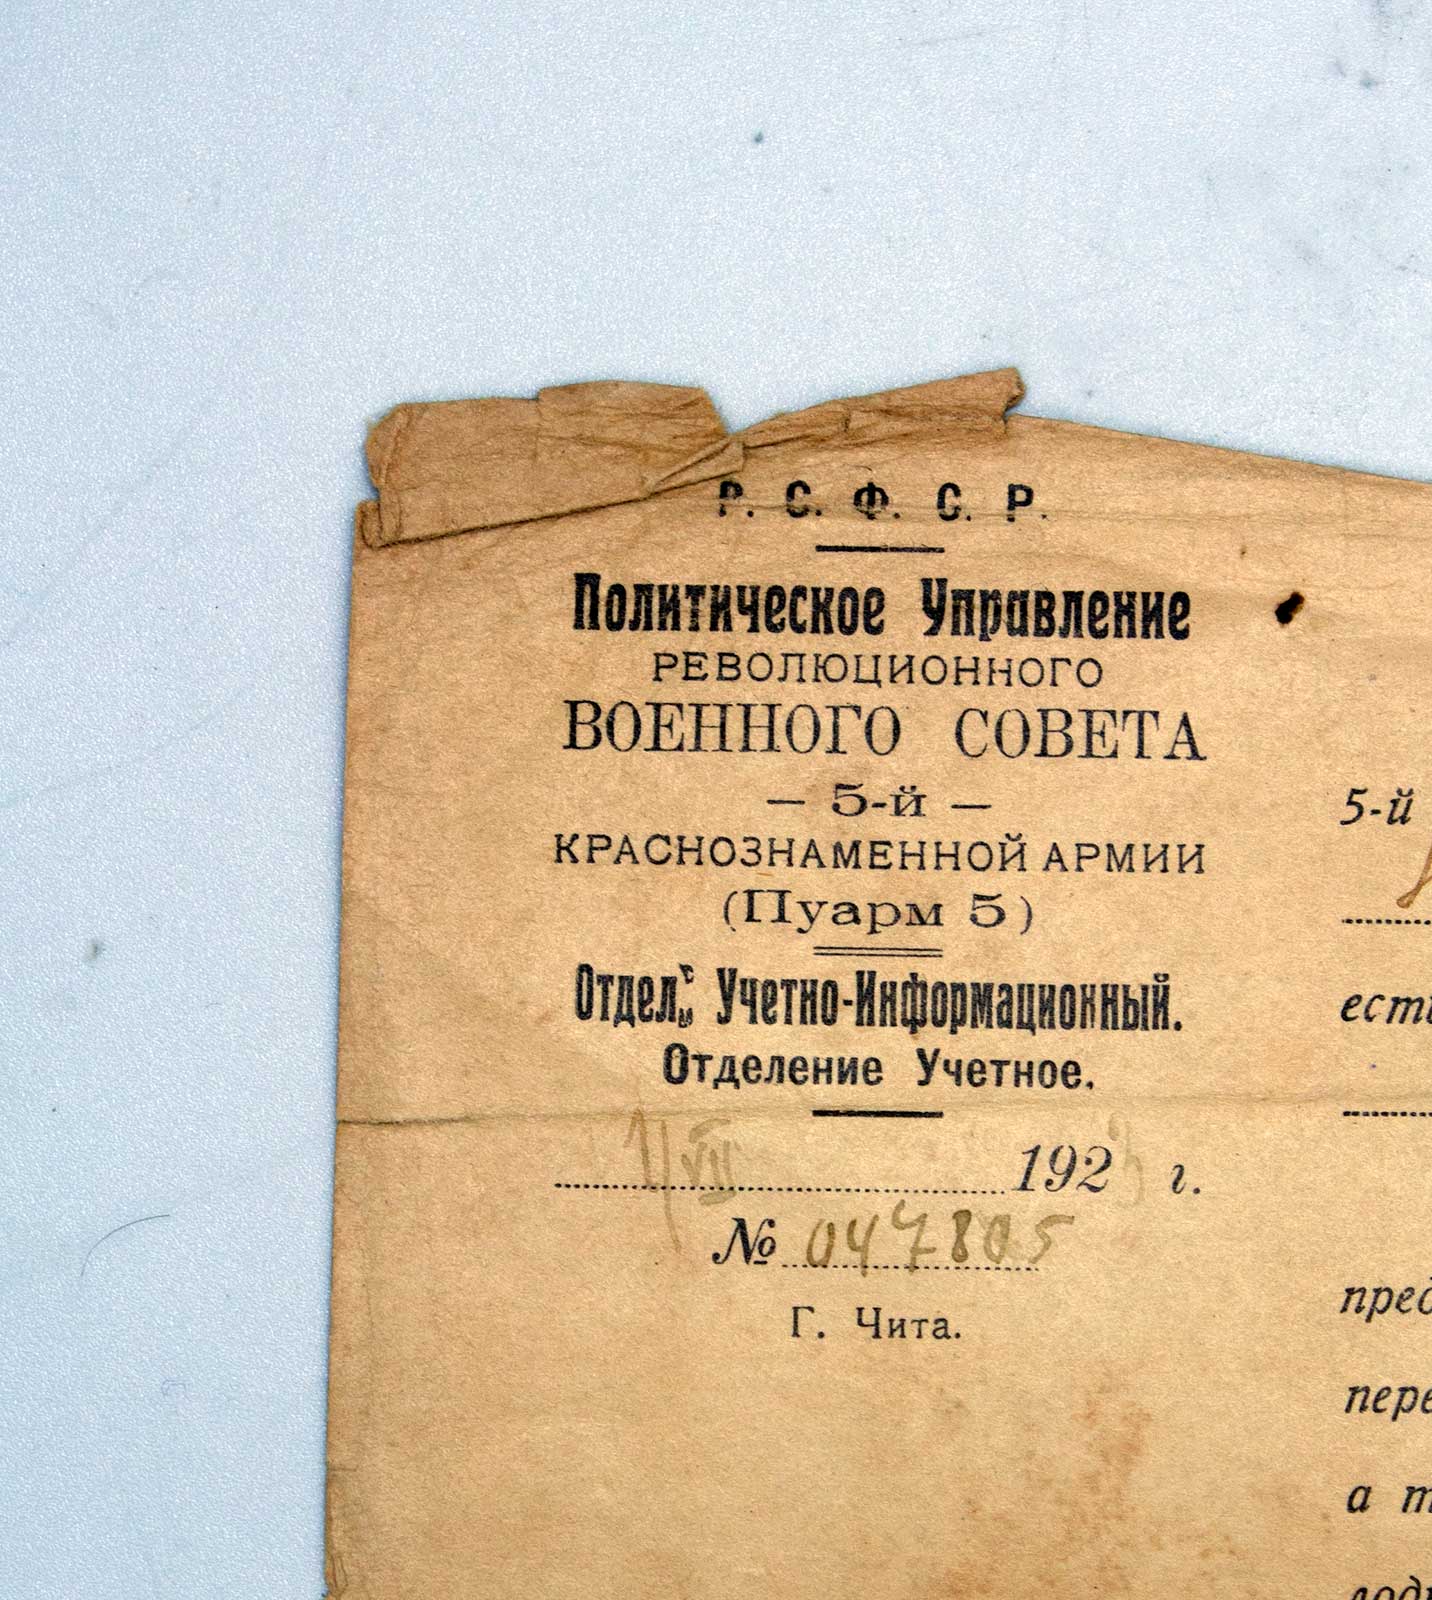 Р. С. Ф. С. Р.
Политическое Управление
РЕВОЛЮЦИОННОГО
ВОЕННОГО СОВЕТА
— 5-й —
КРАСНОЗНАМЕННОЙ АРМИИ
(Пуарм 5)
Учетно-Информационный.
Отделение Учетное.
VII 192 г.
№ 047805
Г. Чита.
5-й
ест
пред
пере
а т